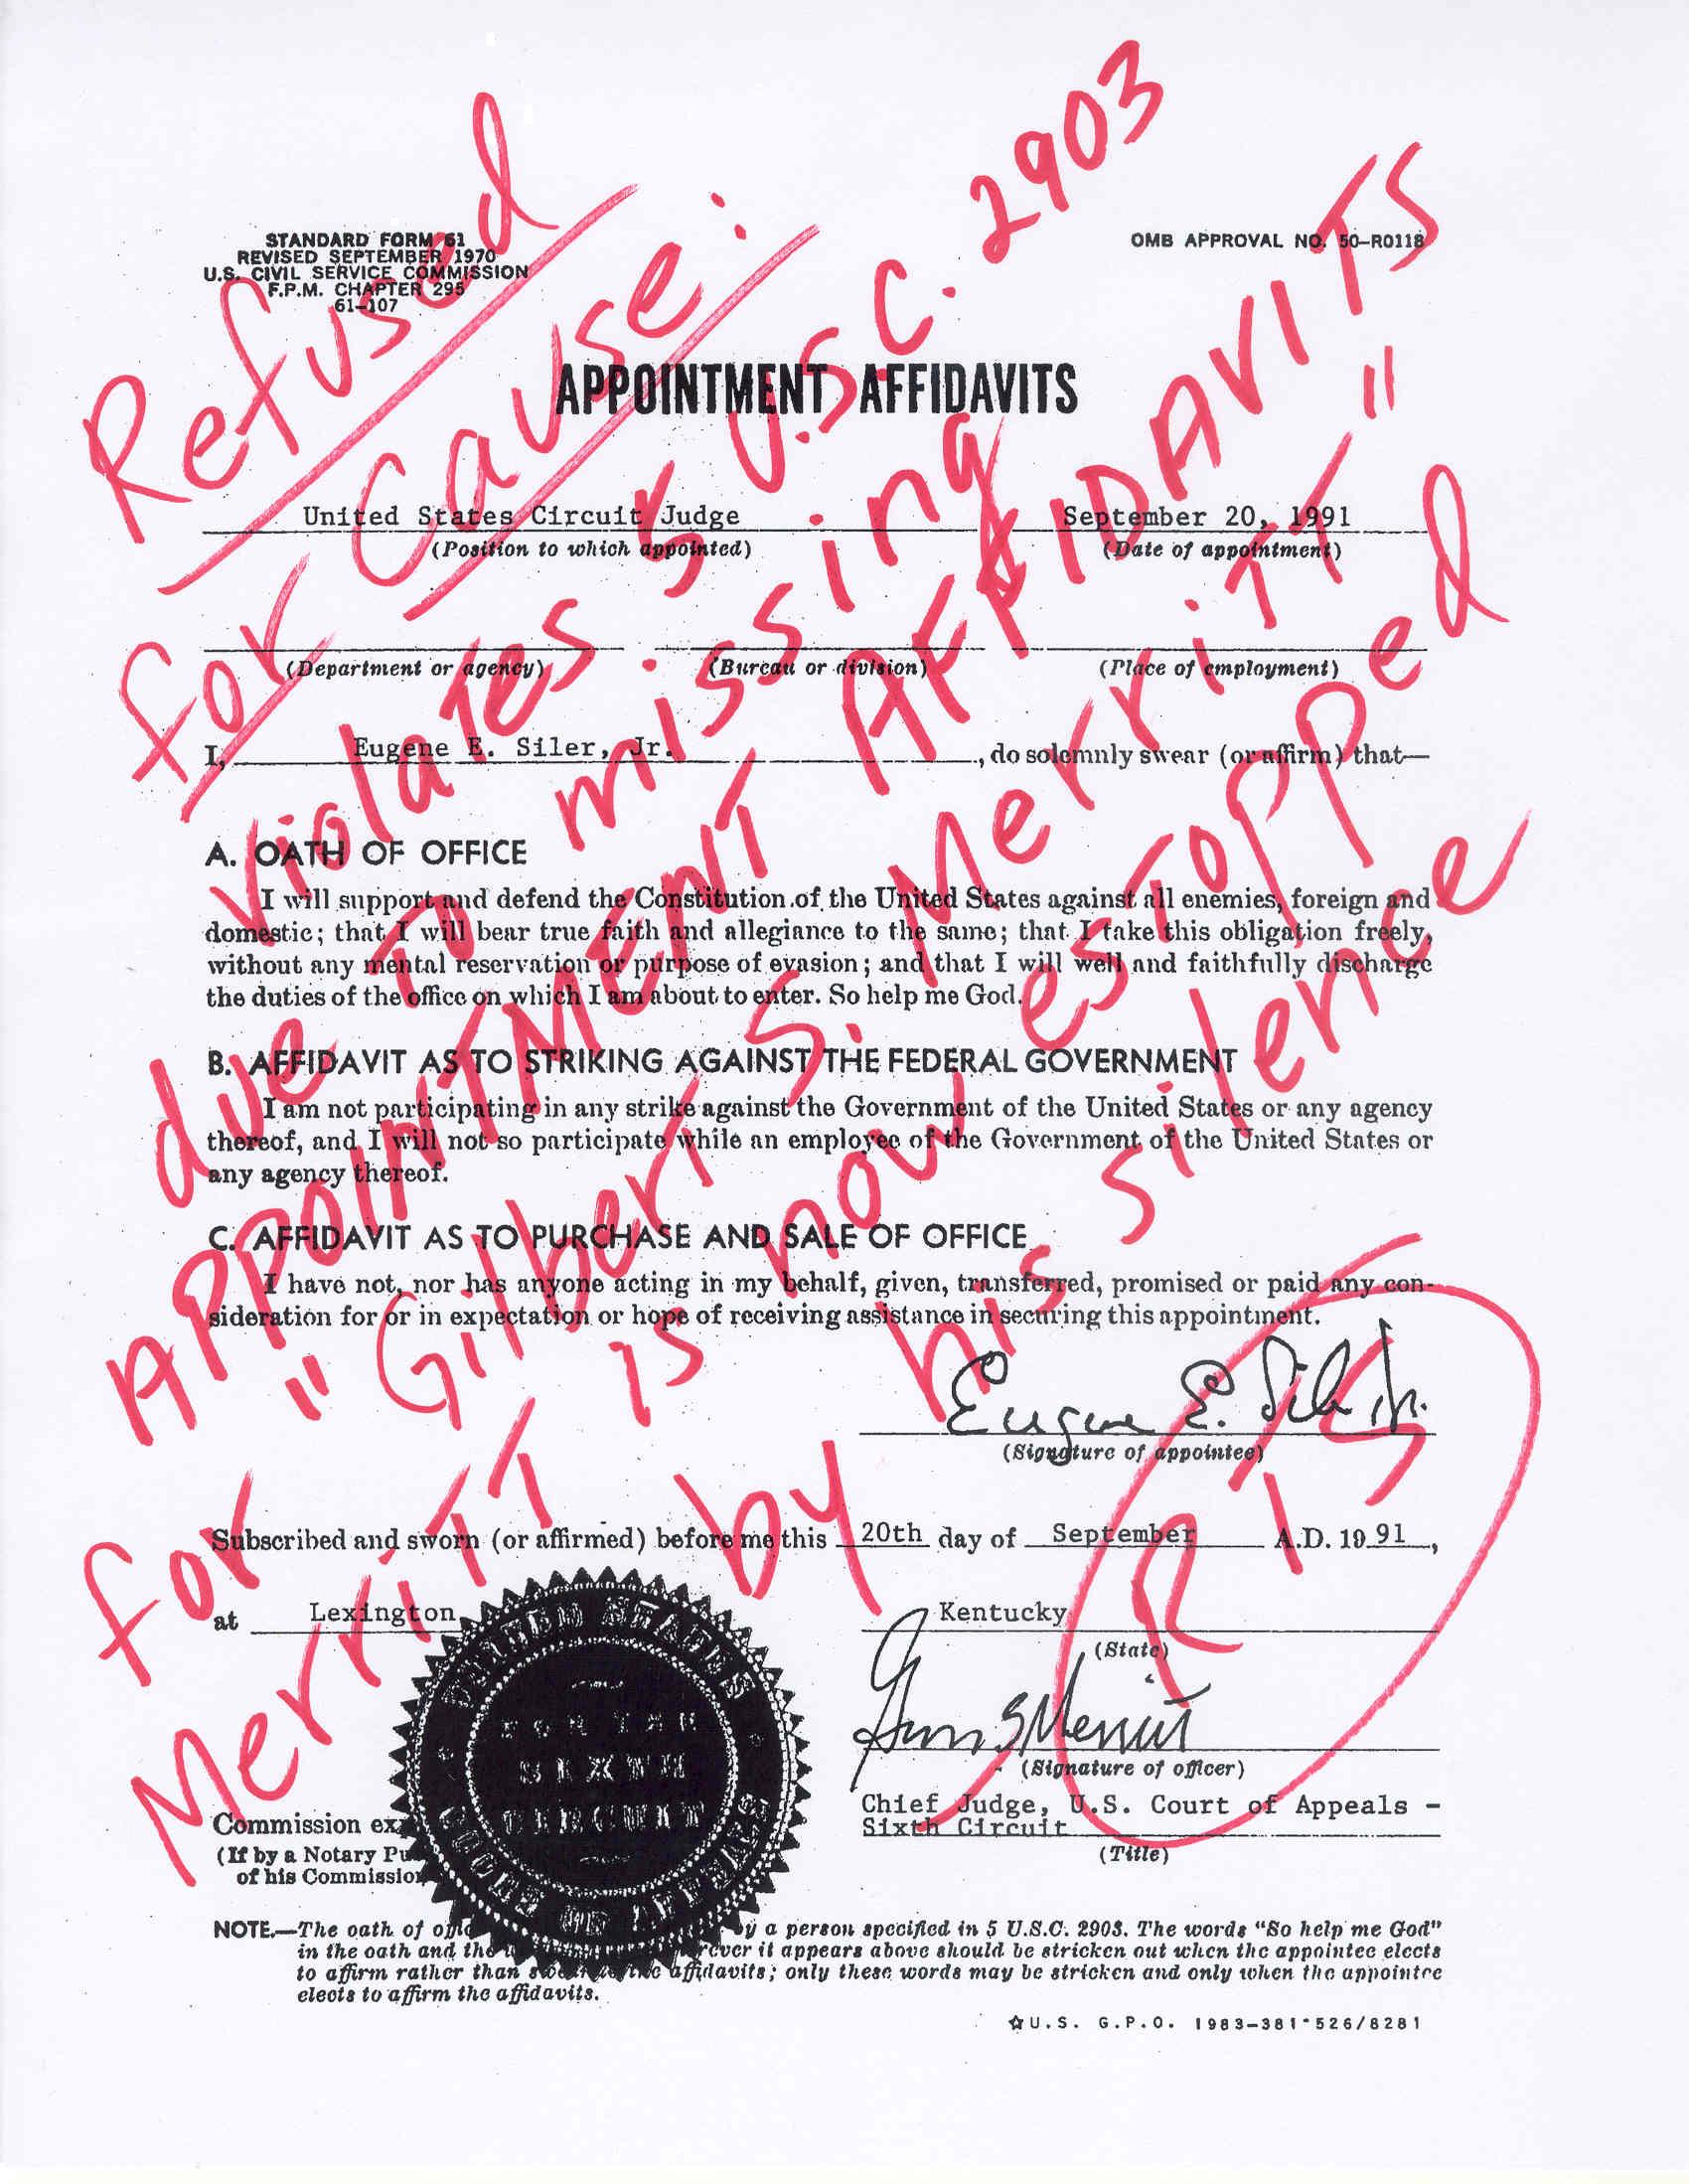 STANDARD FORM 61
REVISED SEPTEMBER 1970
U.S. CIVIL SERVICE COMMISSION
F.P.M. CHAPTER 295
61-107
OMB APPROVAL NO. 50-R0118
APPOINTMENT AFFIDAVITS
United States Circuit Judge September 20, 1991
(Position to which appointed) (Date of appointment)
(Department or agency) (Bureau or division) (Place of employment)
I, Eugene E. Siler, Jr. , do solemnly swear (or affirm) that—
A. OATH OF OFFICE
I will support and defend the Constitution of the United States against all enemies, foreign and
domestic; that I will bear true faith and allegiance to the same; that I take this obligation freely,
without any mental reservation or purpose of evasion; and that I will well and faithfully discharge
the duties of the office on which I am about to enter. So help me God.
B. AFFIDAVIT AS TO STRIKING AGAINST THE FEDERAL GOVERNMENT
I am not participating in any strike against the Government of the United States or any agency
thereof, and I will not so participate while an employee of the Government of the United States or
any agency thereof.
C. AFFIDAVIT AS TO PURCHASE AND SALE OF OFFICE
I have not, nor has anyone acting in my behalf, given, transferred, promised or paid any con-
sideration for or in expectation or hope of receiving assistance in securing this appointment.
Eugene E. Siler Jr.
(Signature of appointee)
Subscribed and sworn (or affirmed) before me this 20th day of September A.D. 19 91 ,
at Lexington Kentucky
(State)
S Merritt
(Signature of officer)
Chief Judge, U.S. Court of Appeals -
Sixth Circuit
(Title)
Commission ex
(If by a Notary Pu
of his Commission
UNITED STATES
FOR THE
SIXTH
CIRCUIT
OF APPEALS
NOTE.—The oath of by a person specified in 5 U.S.C. 2903. The words "So help me God"
in the oath and the it appears above should be stricken out when the appointee elects
to affirm rather than the affidavits; only these words may be stricken and only when the appointee
elects to affirm the affidavits.
☆U.S. G.P.O. 1983-381-526/8281
Refused
for cause:
violates 5 U.S.C. 2903
due to missing
APPOINTMENT AFFIDAVITS
for "Gilbert S. Merritt"
Merritt is now estopped
by his silence
RTS